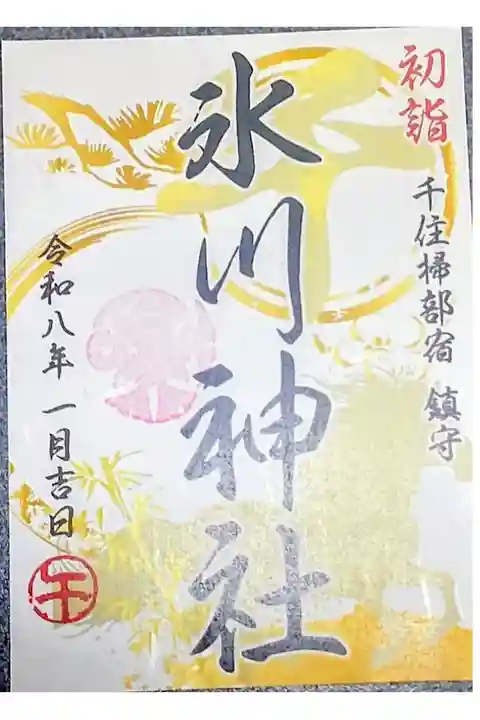 初詣
千住掃部宿 鎮守
氷川神社
令和八年 一月吉日
午